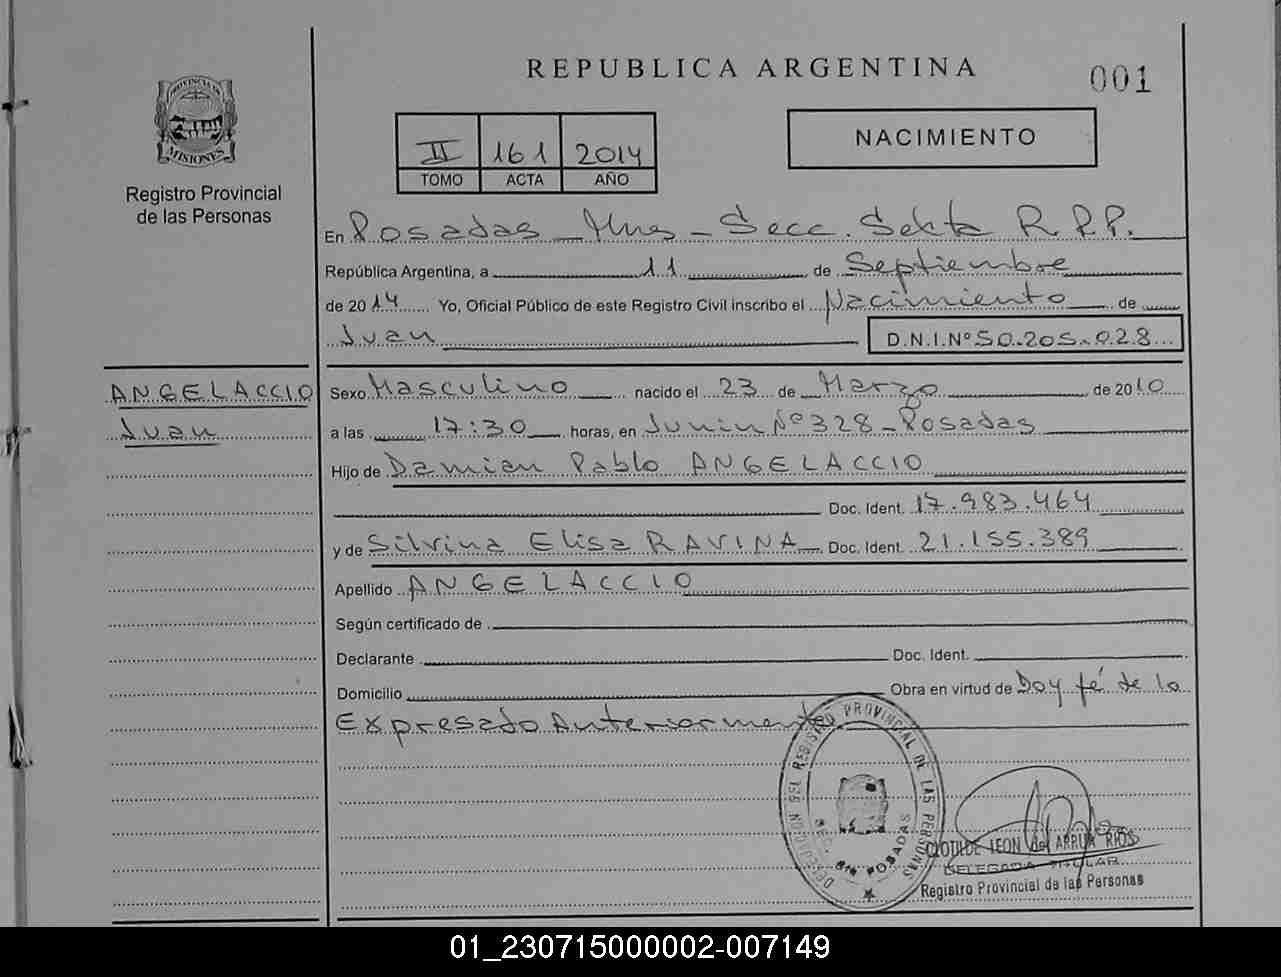 REPUBLICA ARGENTINA
001
PROVINCIA DE
MISIONES
Registro Provincial
de las Personas
II 161 2014
TOMO ACTA AÑO
NACIMIENTO
En Posadas - Mnes - Secc. Sexta R.P.P.
República Argentina, a 11 de Septiembre
de 2014 Yo, Oficial Público de este Registro Civil inscribo el Nacimiento de
Juan D.N.I.Nº 50.205.028
ANGELACCIO
Juan
Sexo Masculino nacido el 23 de Marzo de 2010
a las 17:30 horas, en Junin Nº 328 - Posadas
Hijo de Damian Pablo ANGELACCIO
Doc. Ident. 17.983.464
y de Silvina Elisa RAVINA Doc. Ident. 21.155.389
Apellido ANGELACCIO
Según certificado de
Declarante Doc. Ident.
Domicilio Obra en virtud de Doy fé de lo
Expresado Anteriormente
DELEGACION DEL REGISTRO PROVINCIAL DE LAS PERSONAS
SEC. 6ta POSADAS
CLOTILDE LEON de ARRUA RIOS
DELEGADA TITULAR
Registro Provincial de las Personas
01_230715000002-007149